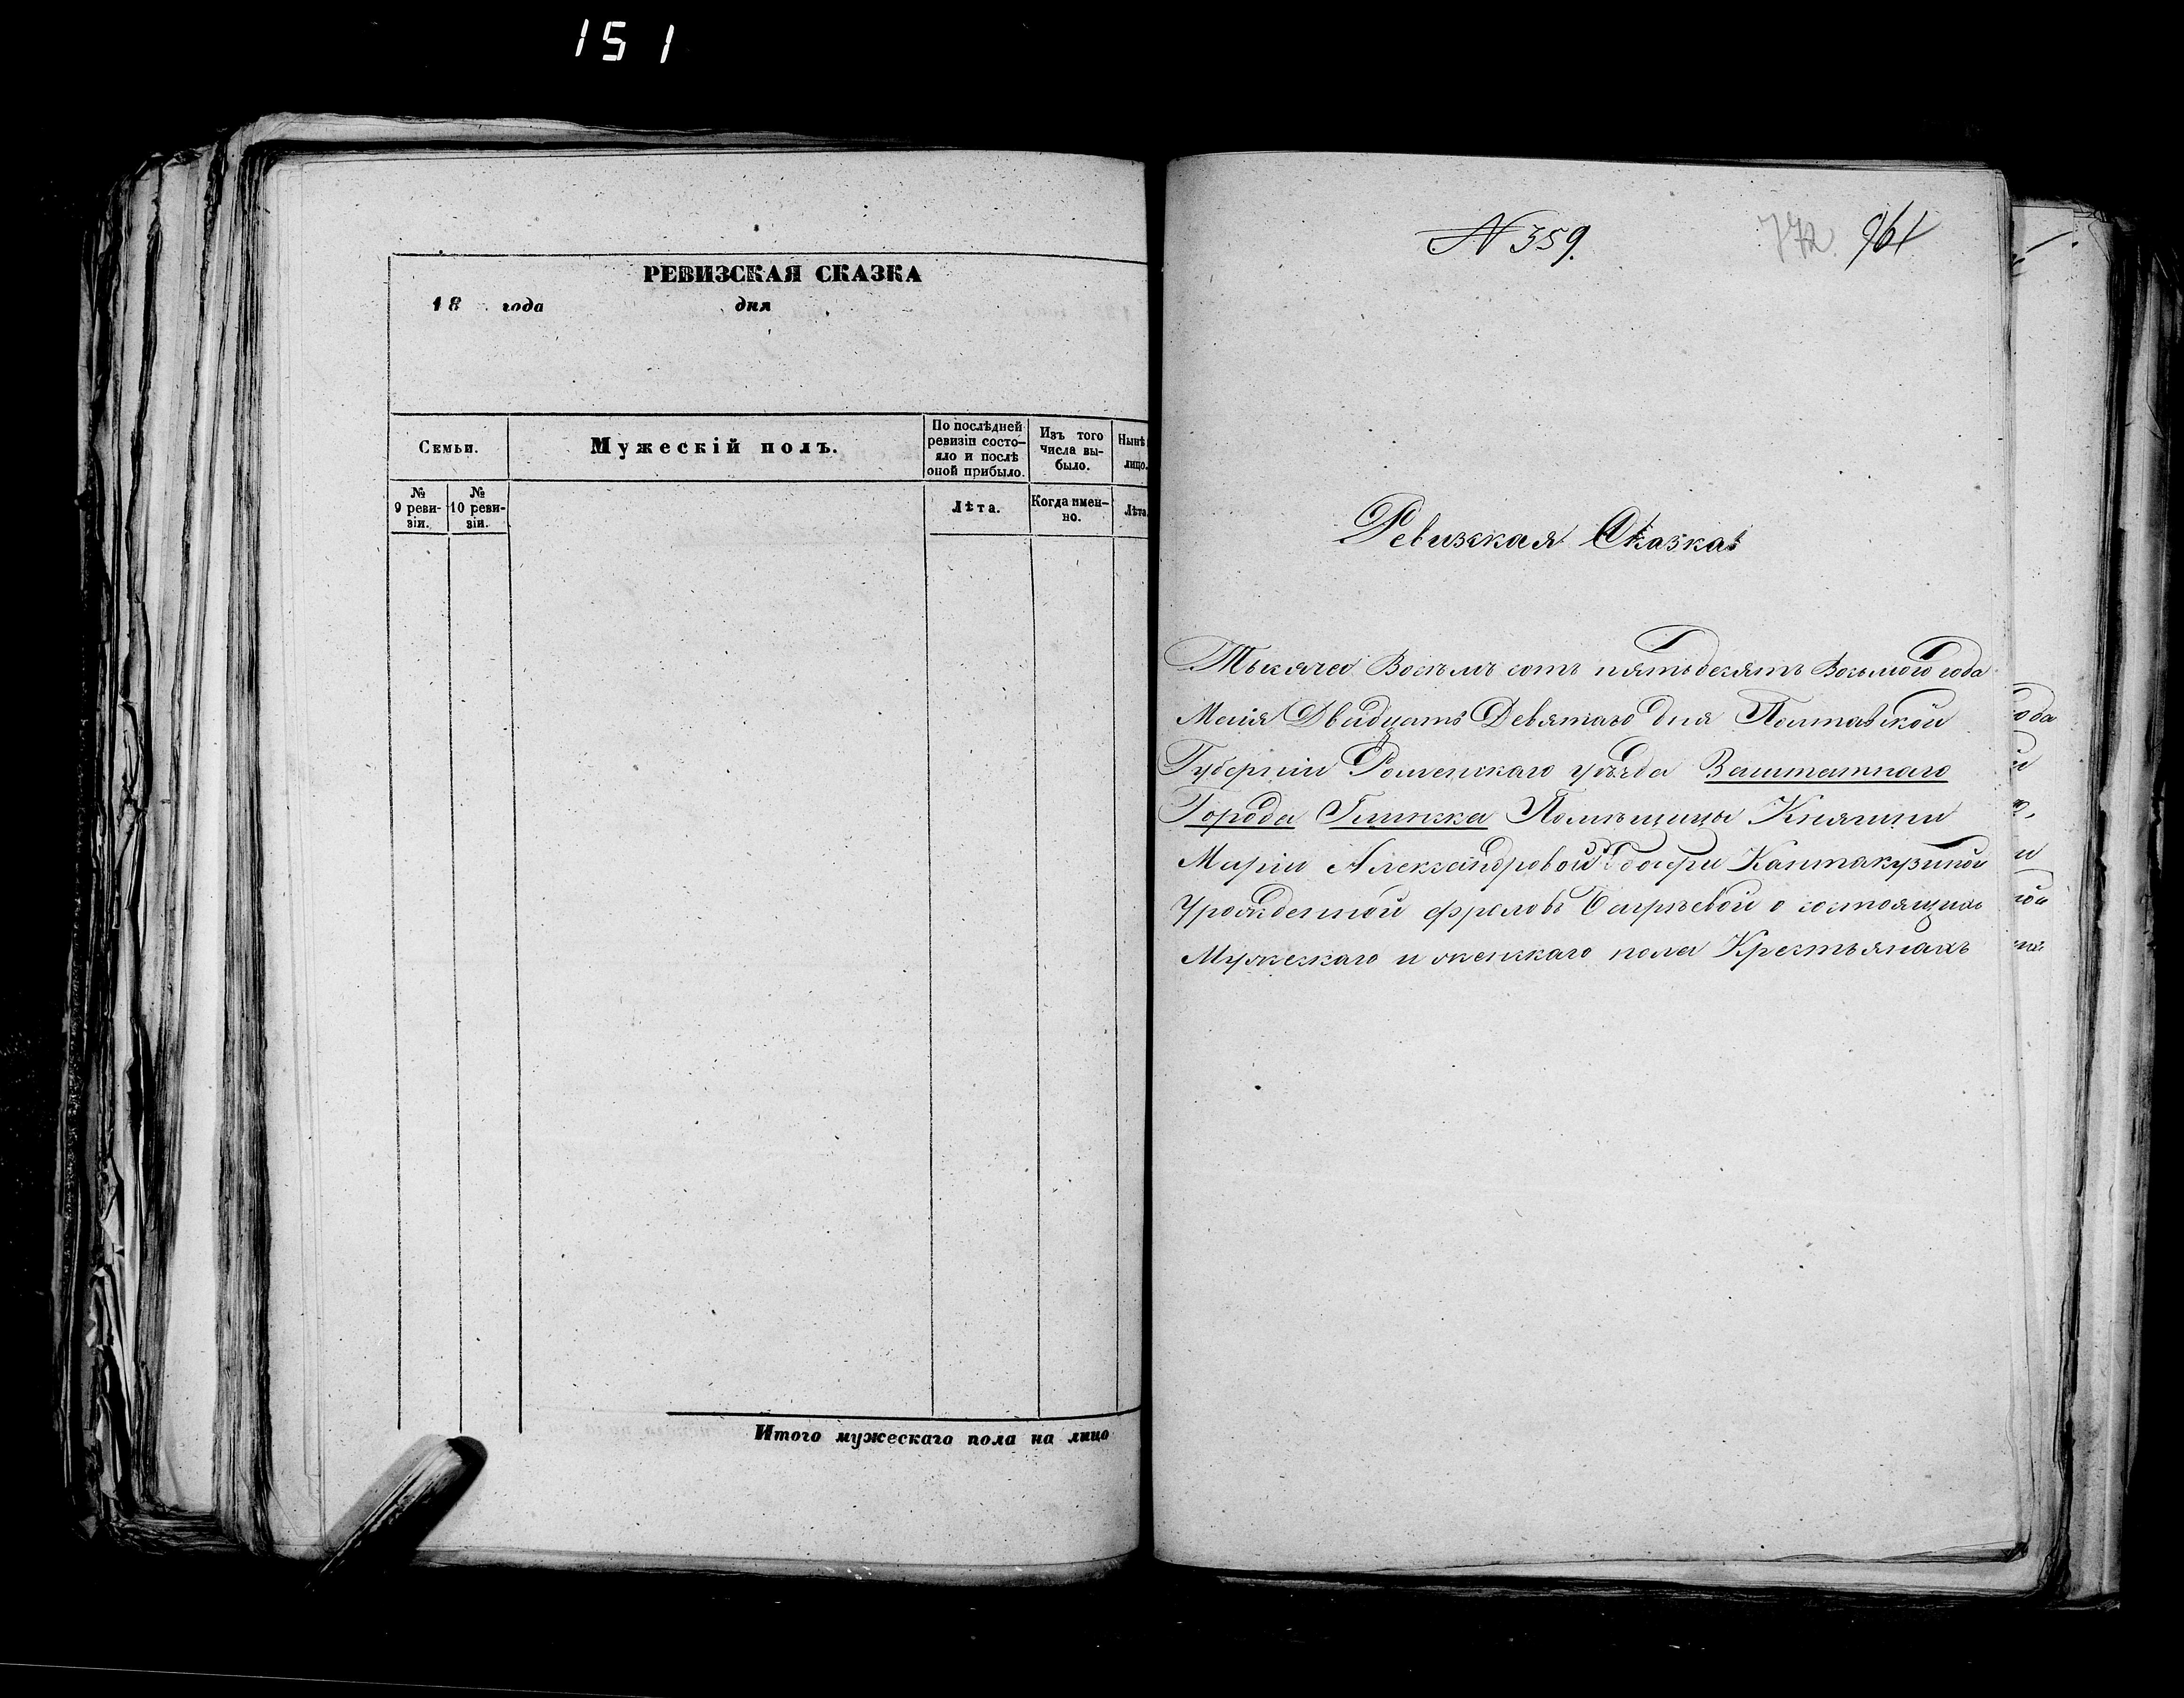 151
РЕВИЗСКАЯ СКАЗКА
18 года дня
Семьи.
Мужескій полъ.
По послѣдней ревизіи состо-яло и послѣ оной прибыло.
Изъ того числа вы-было.
Нынѣ лицо.
№ 9 реви-зіи.
№ 10 реви-зіи.
Лѣта.
Когда имен-но.
Лѣта
Итого мужескаго пола на лицо
N 359.
772. 961
Ревизская Сказка
Тысяча Восемъ сотъ пятьдесятъ Восьмого года
Маія Двадцать Девятаго дня Полтавской
Губерніи Роменскаго уѣзда Заштатнаго
Города Глинска Помѣщицы Княгини
Маріи Александровой Кантакузиной
Урожденной Фроловъ Багрѣевой о состоящихъ
Мужескаго и женскаго пола Крестьянахъ